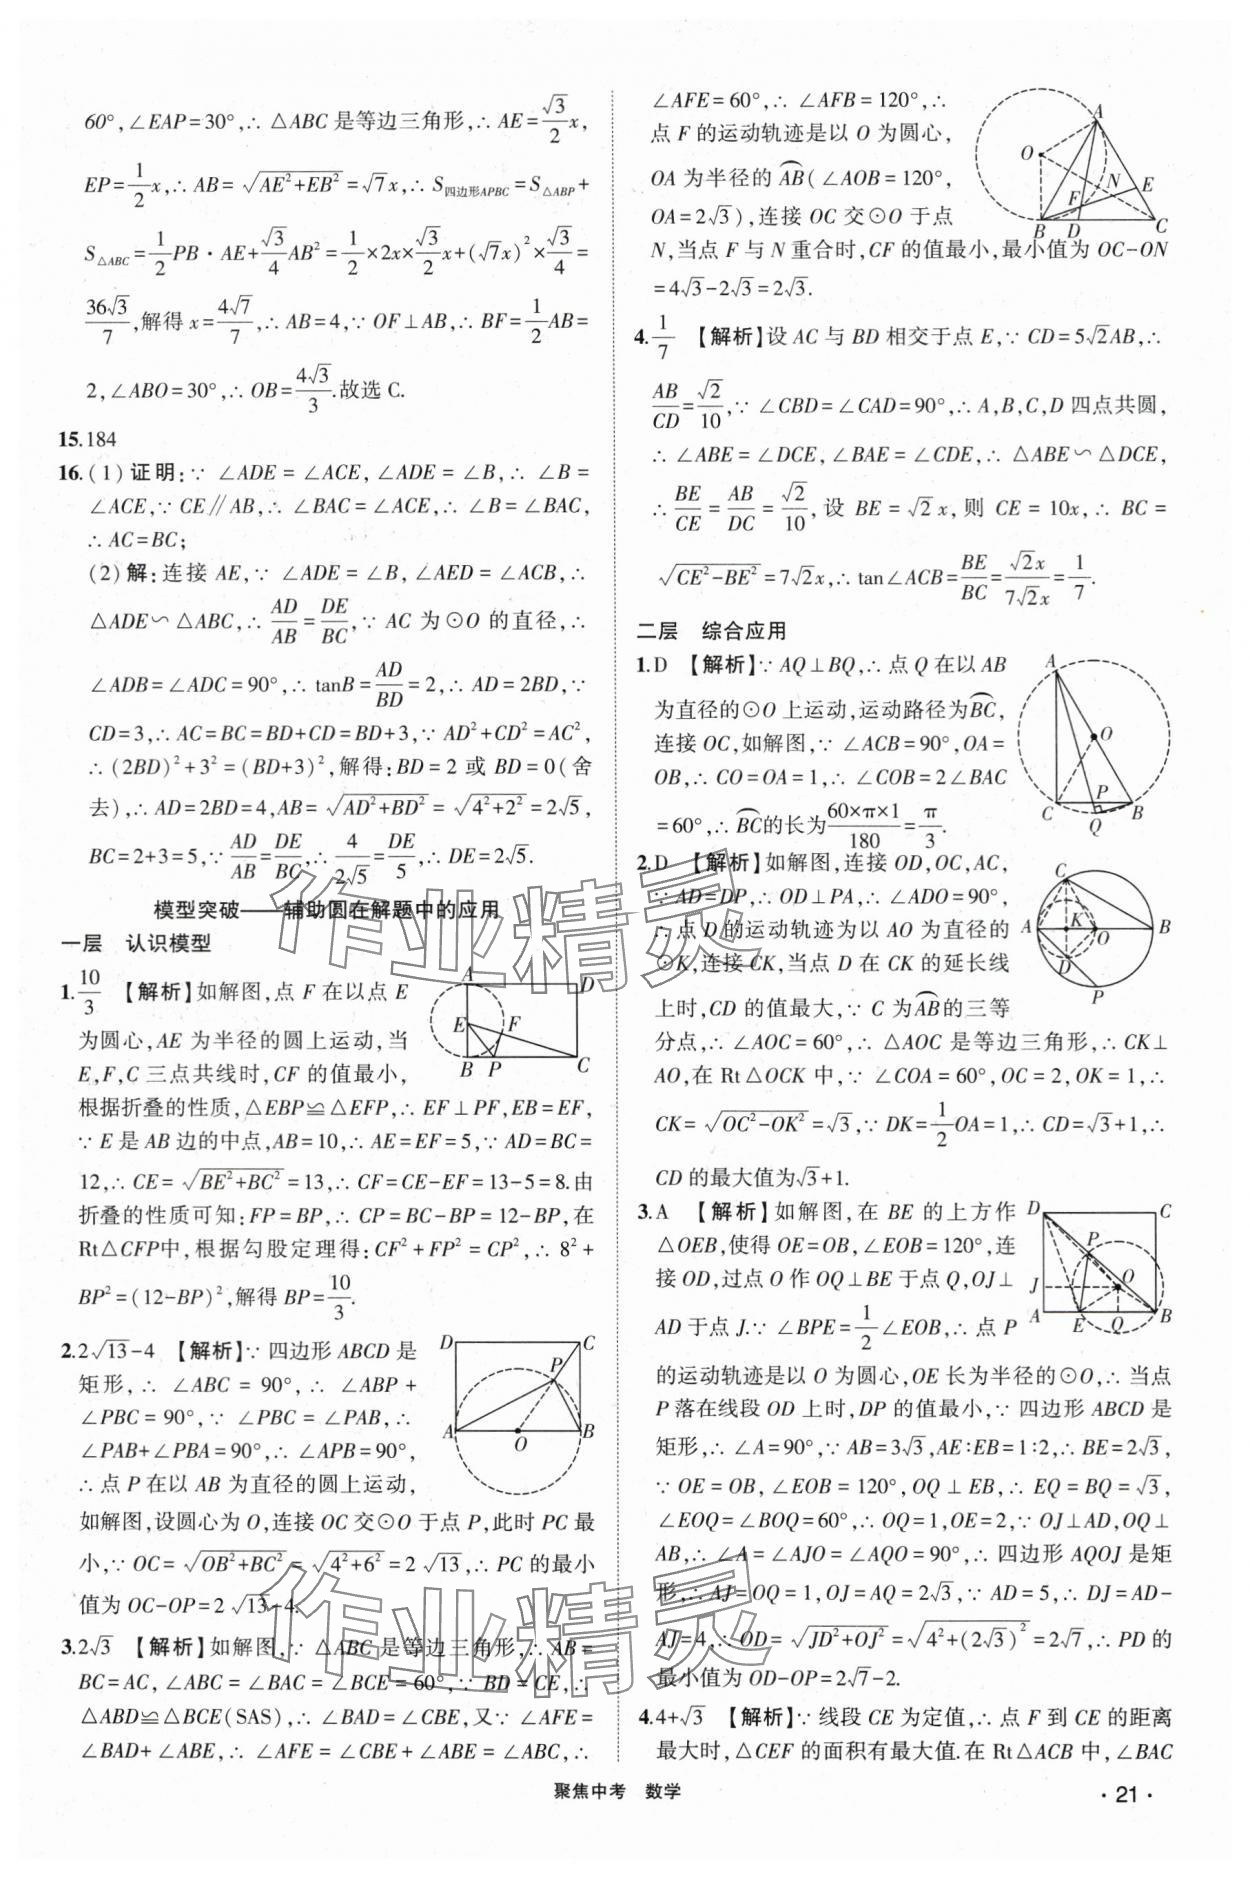 60°,∠EAP=30°,∴△ABC是等边三角形,∴AE=√3/2x,
EP=1/2x,∴AB=√(AE²+EB²)=√7x,∴S四边形APBC=S△ABP+
S△ABC=1/2PB·AE+√3/4AB²=1/2×2x×√3/2x+(√7x)²×√3/4=
36√3/7,解得x=4√7/7,∴AB=4,∵OF⊥AB,∴BF=1/2AB=
2,∠ABO=30°,∴OB=4√3/3.故选C.
15.184
16.(1)证明:∵∠ADE=∠ACE,∠ADE=∠B,∴∠B=
∠ACE,∵CE∥AB,∴∠BAC=∠ACE,∴∠B=∠BAC,
∴AC=BC;
(2)解:连接AE,∵∠ADE=∠B,∠AED=∠ACB,∴
△ADE∽△ABC,∴AD/AB=DE/BC,∵AC为⊙O的直径,∴
∠ADB=∠ADC=90°,∴tanB=AD/BD=2,∴AD=2BD,∵
CD=3,∴AC=BC=BD+CD=BD+3,∵AD²+CD²=AC²,
∴(2BD)²+3²=(BD+3)²,解得:BD=2或BD=0(舍
去),∴AD=2BD=4,AB=√(AD²+BD²)=√(4²+2²)=2√5,
BC=2+3=5,∵AD/AB=DE/BC,∴4/2√5=DE/5,∴DE=2√5.
模型突破——辅助圆在解题中的应用
一层 认识模型
1.10/3 【解析】如解图,点F在以点E
为圆心,AE为半径的圆上运动,当
E,F,C三点共线时,CF的值最小,
根据折叠的性质,△EBP≌△EFP,∴EF⊥PF,EB=EF,
∵E是AB边的中点,AB=10,∴AE=EF=5,∵AD=BC=
12,∴CE=√(BE²+BC²)=13,∴CF=CE-EF=13-5=8.由
折叠的性质可知:FP=BP,∴CP=BC-BP=12-BP,在
Rt△CFP中,根据勾股定理得:CF²+FP²=CP²,∴8²+
BP²=(12-BP)²,解得BP=10/3.
A D E F B P C
2.2√13-4 【解析】∵四边形ABCD是
矩形,∴∠ABC=90°,∴∠ABP+
∠PBC=90°,∵∠PBC=∠PAB,∴
∠PAB+∠PBA=90°,∴∠APB=90°,
∴点P在以AB为直径的圆上运动,
如解图,设圆心为O,连接OC交⊙O于点P,此时PC最
小,∵OC=√(OB²+BC²)=√(4²+6²)=2√13,∴PC的最小
值为OC-OP=2√13-4.
D C P A O B
3.2√3 【解析】如解图,∵△ABC是等边三角形,∴AB=
BC=AC,∠ABC=∠BAC=∠BCE=60°,∵BD=CE,∴
△ABD≌△BCE(SAS),∴∠BAD=∠CBE,又∵∠AFE=
∠BAD+∠ABE,∴∠AFE=∠CBE+∠ABE=∠ABC,∴
∠AFE=60°,∴∠AFB=120°,∴
点F的运动轨迹是以O为圆心,
OA为半径的⌒AB(∠AOB=120°,
OA=2√3),连接OC交⊙O于点
N,当点F与N重合时,CF的值最小,最小值为OC-ON
=4√3-2√3=2√3.
A O N E F B D C
4.1/7 【解析】设AC与BD相交于点E,∵CD=5√2AB,∴
AB/CD=√2/10,∵∠CBD=∠CAD=90°,∴A,B,C,D四点共圆,
∴∠ABE=∠DCE,∠BAE=∠CDE,∴△ABE∽△DCE,
∴BE/CE=AB/DC=√2/10,设BE=√2x,则CE=10x,∴BC=
√(CE²-BE²)=7√2x,∴tan∠ACB=BE/BC=√2x/7√2x=1/7.
二层 综合应用
1.D 【解析】∵AQ⊥BQ,∴点Q在以AB
为直径的⊙O上运动,运动路径为⌒BC,
连接OC,如解图,∵∠ACB=90°,OA=
OB,∴CO=OA=1,∴∠COB=2∠BAC
=60°,∴⌒BC的长为60×π×1/180=π/3.
A O P C Q B
2.D 【解析】如解图,连接OD,OC,AC,
∵AD=DP,∴OD⊥PA,∴∠ADO=90°,
∴点D的运动轨迹为以AO为直径的
⊙K,连接CK,当点D在CK的延长线
上时,CD的值最大,∵C为⌒AB的三等
分点,∴∠AOC=60°,∴△AOC是等边三角形,∴CK⊥
AO,在Rt△OCK中,∵∠COA=60°,OC=2,OK=1,∴
CK=√(OC²-OK²)=√3,∵DK=1/2OA=1,∴CD=√3+1,∴
CD的最大值为√3+1.
C A K O B D P
3.A 【解析】如解图,在BE的上方作
△OEB,使得OE=OB,∠EOB=120°,连
接OD,过点O作OQ⊥BE于点Q,OJ⊥
AD于点J.∵∠BPE=1/2∠EOB,∴点P
的运动轨迹是以O为圆心,OE长为半径的⊙O,∴当点
P落在线段OD上时,DP的值最小,∵四边形ABCD是
矩形,∴∠A=90°,∵AB=3√3,AE∶EB=1∶2,∴BE=2√3,
∵OE=OB,∠EOB=120°,OQ⊥EB,∴EQ=BQ=√3,
∠EOQ=∠BOQ=60°,∴OQ=1,OE=2,∵OJ⊥AD,OQ⊥
AB,∴∠A=∠AJO=∠AQO=90°,∴四边形AQOJ是矩
形,∴AJ=OQ=1,OJ=AQ=2√3,∵AD=5,∴DJ=AD-
AJ=4,∴OD=√(JD²+OJ²)=√(4²+(2√3)²)=2√7,∴PD的
最小值为OD-OP=2√7-2.
D C P J O A E Q B
4.4+√3 【解析】∵线段CE为定值,∴点F到CE的距离
最大时,△CEF的面积有最大值.在Rt△ACB中,∠BAC
作业精灵
作业精灵
聚焦中考 数学
·21·